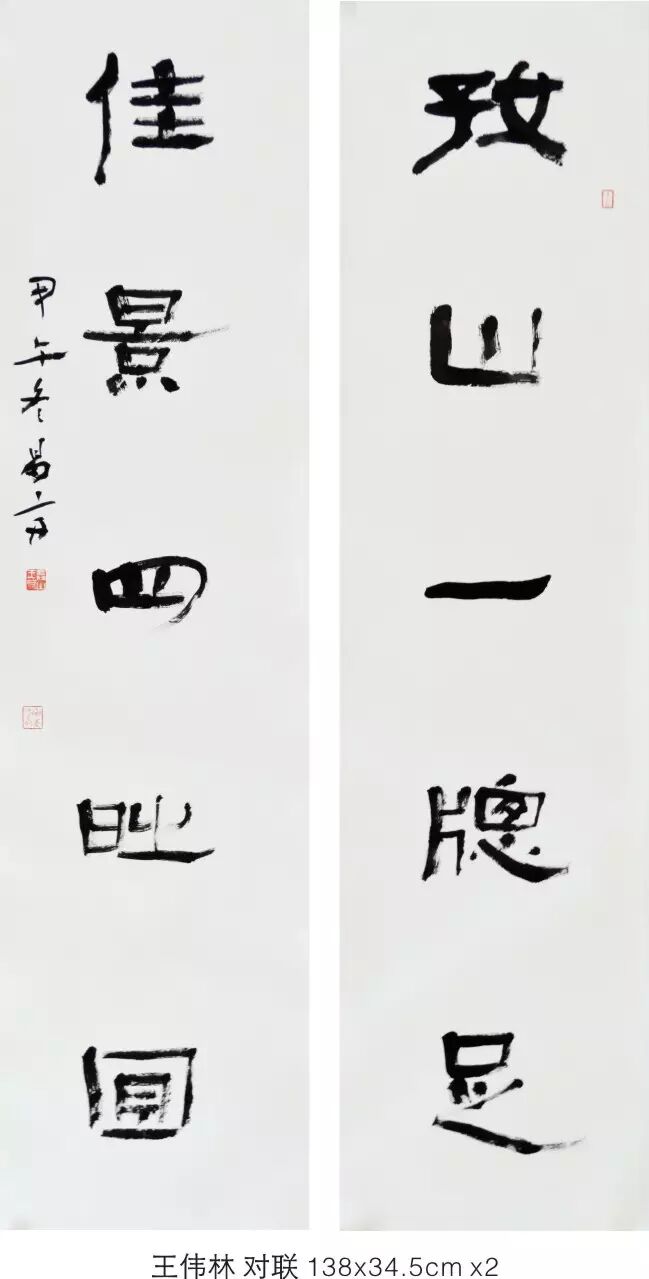 好山一牕足
佳景四時圓
甲午冬易斋
王伟林 对联 138x34.5cm x2